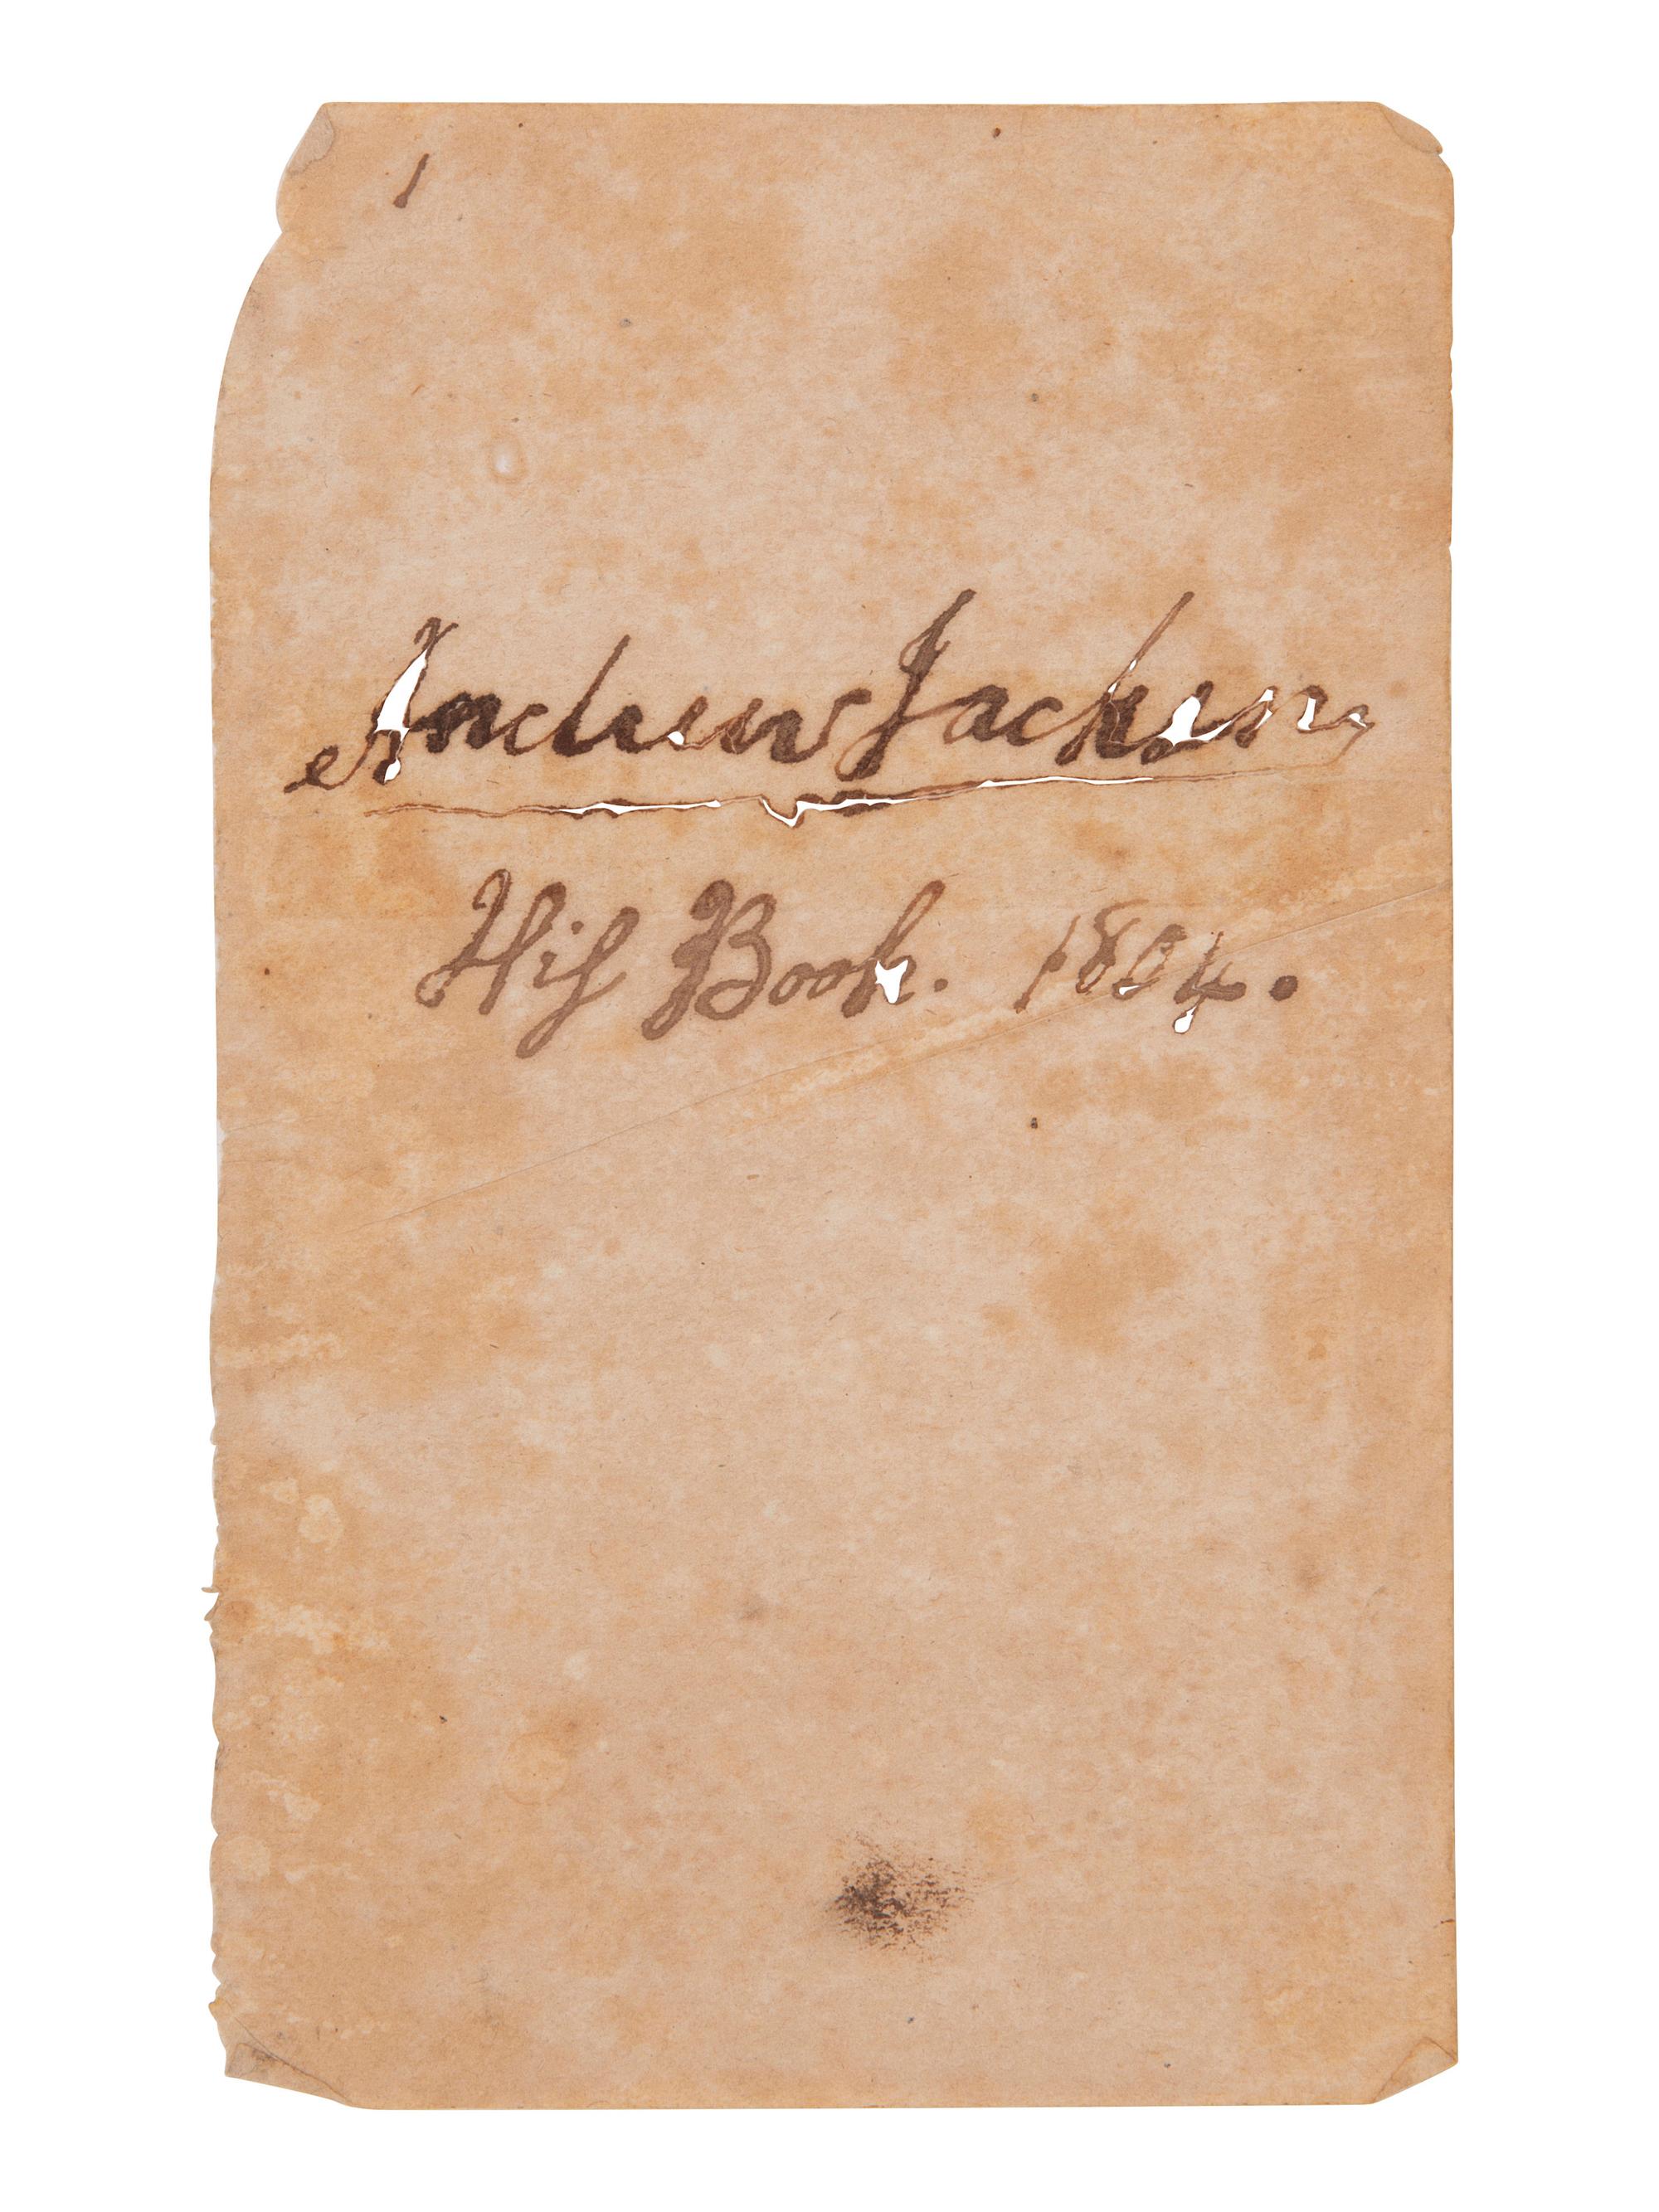 Andrew Jackson,
His Book. 1804.